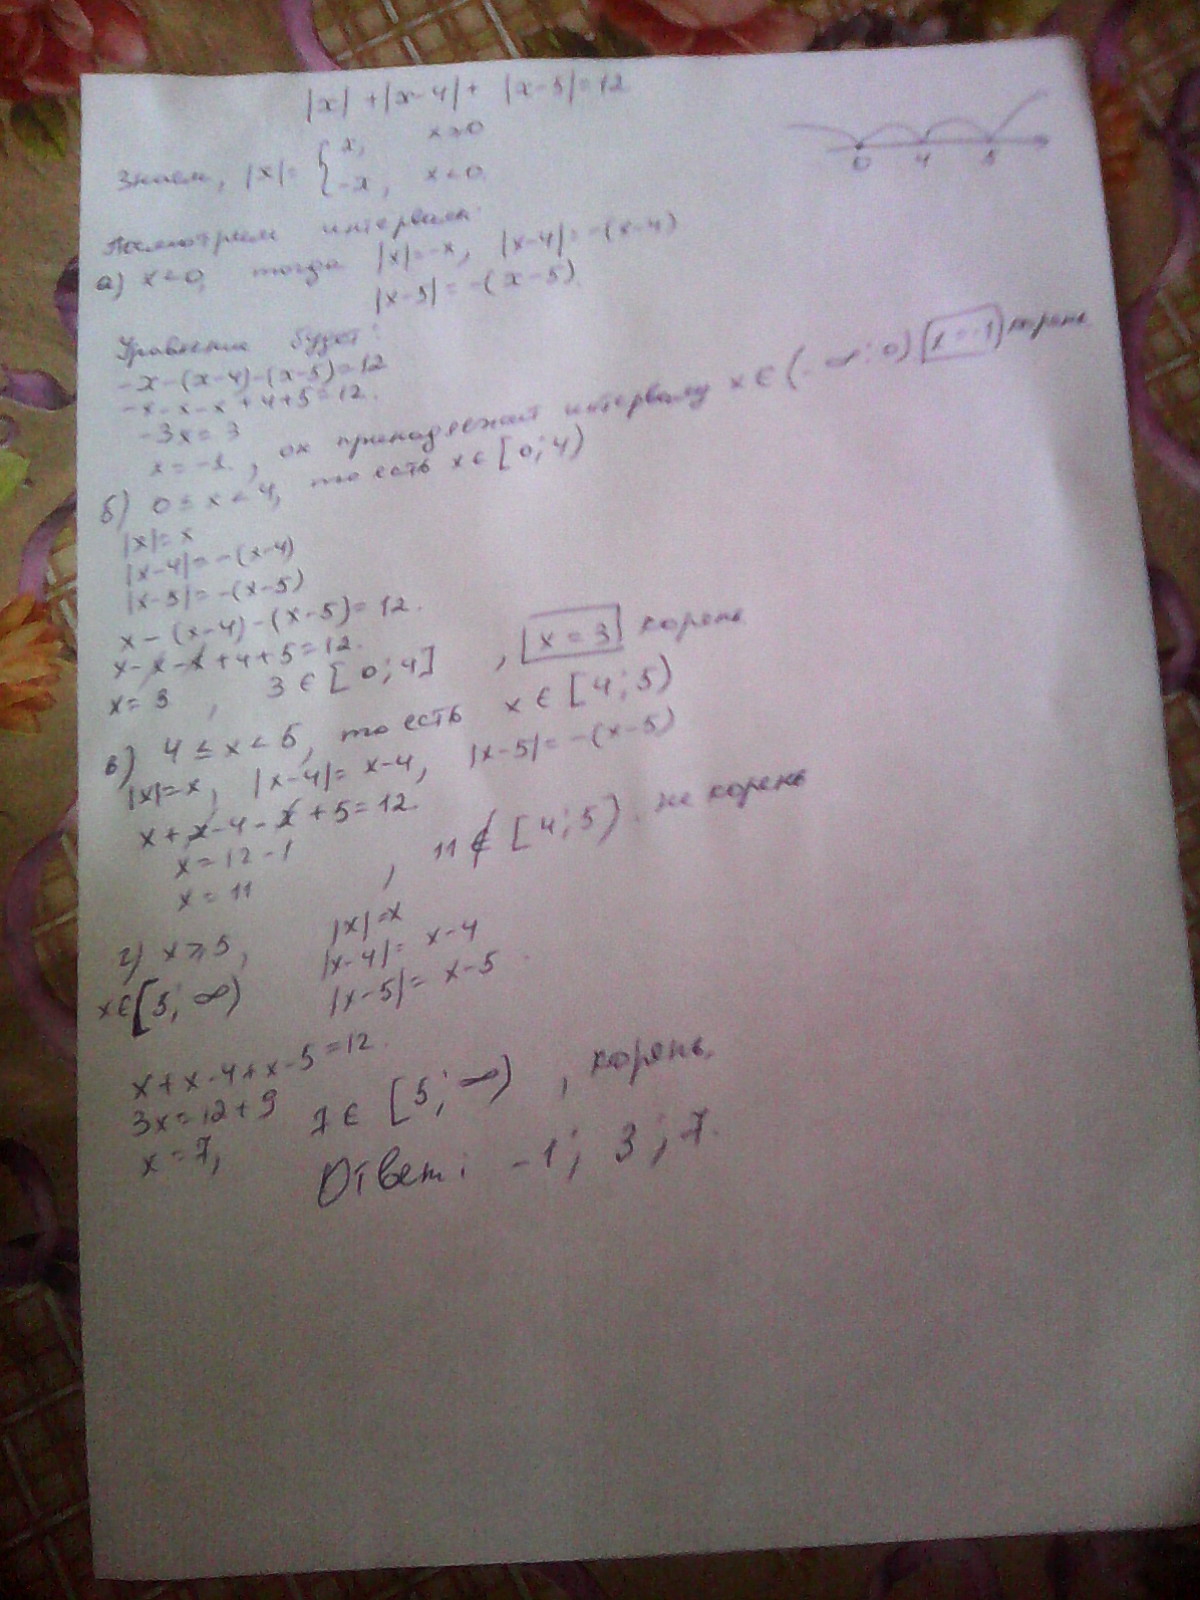 |x| + |x-4| + |x-5| = 12
0 4 5
Знаем, |x| = { x, x ≥ 0
-x, x < 0.
интервалы:
а) x < 0, тогда |x| = -x, |x-4| = -(x-4)
|x-5| = -(x-5).
Уравнение будет:
-x-(x-4)-(x-5)=12
-x-x-x+4+5=12.
-3x=3
x=-1, он принадлежит интервалу x ∈ (-∞; 0) x=-1 корень
б) 0 ≤ x < 4, то есть x ∈ [0; 4)
|x|=x
|x-4|=-(x-4)
|x-5|=-(x-5)
x-(x-4)-(x-5)=12.
x-x-x+4+5=12.
x=3, 3 ∈ [0; 4], x = 3 корень
в) 4 ≤ x < 5, то есть x ∈ [4; 5)
|x|=x, |x-4|=x-4, |x-5|=-(x-5)
x+x-4-x+5=12.
x=12-1
x=11, 11 ∉ [4; 5). не корень
г) x ≥ 5, |x|=x
|x-4|=x-4
x∈[5; ∞) |x-5|=x-5.
x+x-4+x-5=12.
3x=12+9
x=7, 7 ∈ [5; ∞), корень.
Ответ: -1; 3; 7.